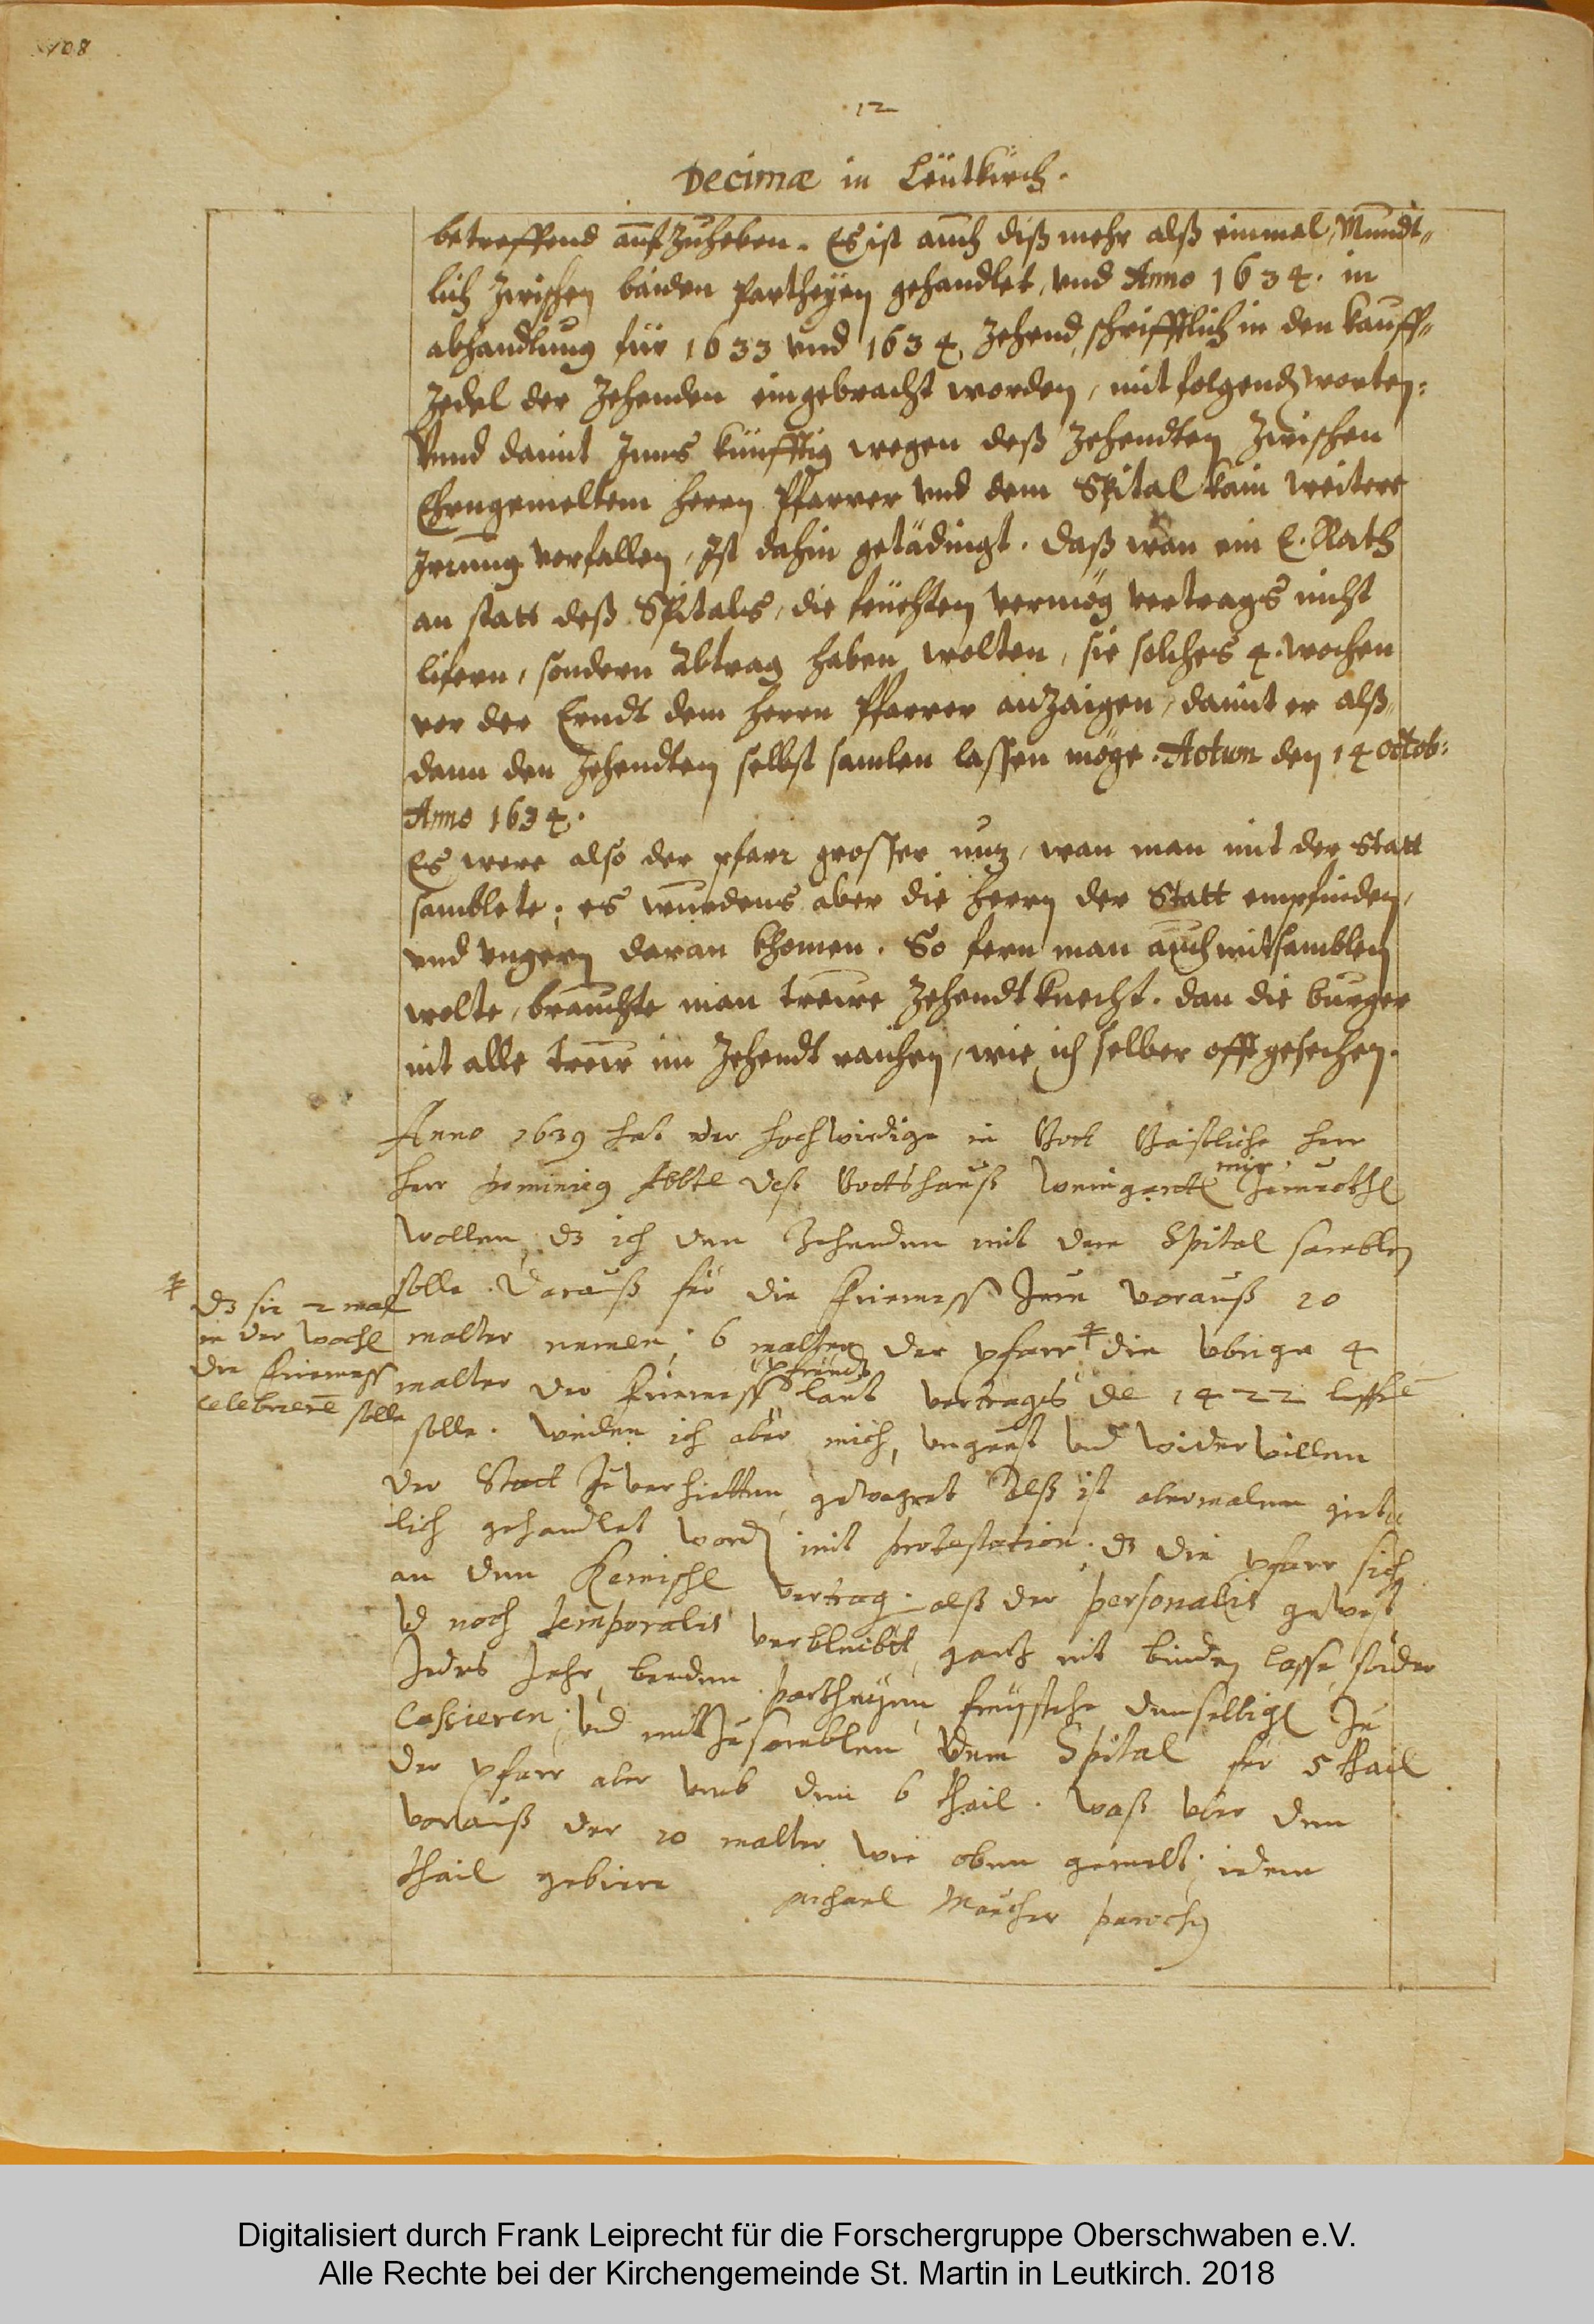 108
12
Decimæ in Leütkirch.
betreffend auffzuheben. Es ist auch diß mehr alß einmal, Mundt„
lich zwischen baiden Partheyen gehandlet, vnd Anno 1634. in
abhandlung für 1633 vnd 1634 Zehend, schrifftlich in den kauff„
zedel der Zehenden eingebracht worden, mit folgend worten:
Vnnd damit Inns künfftig wegen deß Zehendten zwischen
Ehrngemeltem herrn Pfarrer vnd dem Spital kain weitere
Irrung vorfallen, Ist dahin getädingt. daß wan ein E. Rath
an statt deß Spitals, die früchten vermög vertrags nicht
lifern, sondern Abtrag haben wolten, sie solches 4. wochen
vor der Erndt dem herrn Pfarrer anzaigen, damit er alß„
dann den Zehendten selbst samlen lassen möge. Actum den 14 Octob:
Anno 1634.
Es were also der pfarr grosser nuz, wan man mit der Statt
samblete; es wurdens aber die herrn der Statt empfinden,
vnd vngern daran khomen. So fern man auch mitsamblen
wolte, brauchte man trewe Zehendtknecht. dan die burger
nit alle trew im Zehendt raichen, wie ich selber offt gesechen.
Anno 1639 hat der hochwirdige in Gott Gaistliche herr
herr Dominicg Abbte deß Gottshauß Weingarten mir
wollen, dz ich den Zehenden mit dem Spital samblen
solle. Darauß für die Friemess Inen vorauß 10
malter nemen; 6 malter der pfarr ⧧ die vbrige 4
⧧ dz sie 2 mal
in der Woche
die Friemess
celebrierē solle
malter der Friemess pfriendt laut vertrags de 1422
solle. Weilen ich aber mich, vngunst vnd widerwillen
der Statt zu verhietten, gewegret Alß ist abermalen giet
lich gehandlet word mit protestation. dz die pfarr sich
an den vertrag. alß der personalis gewest
vd noch temporalis verbleibet, gantz nit binden lasse, sonder
Jedes Jahr beeden partheyen freystehe denselbige zu
Cassieren; vnd mit zusamblen dem Spital fir 5 thail
der pfarr aber vmb den 6 thail. Waß vber den
vorauß der 10 malter wie oben gemelt; idem
thail gebiere
Michael Maucher parochg
Digitalisiert durch Frank Leiprecht für die Forschergruppe Oberschwaben e.V.
Alle Rechte bei der Kirchengemeinde St. Martin in Leutkirch. 2018